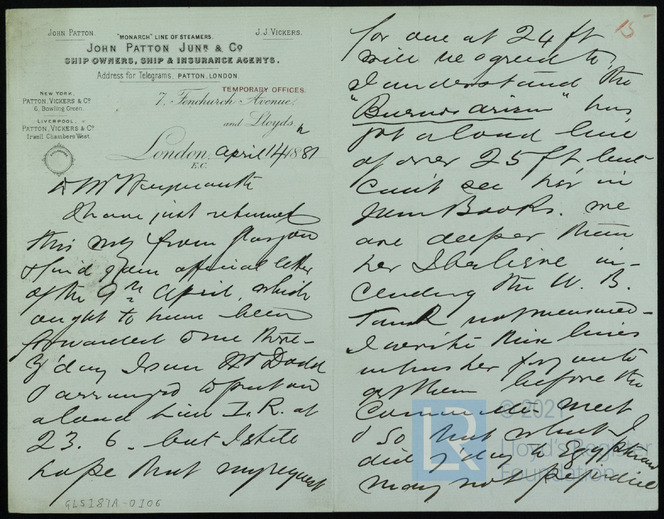 John Patton.
J. J. Vickers.
"MONARCH" LINE OF STEAMERS.
JOHN PATTON JUNR & Co
SHIP OWNERS, SHIP & INSURANCE AGENTS.
Address for Telegrams, PATTON, LONDON
TEMPORARY OFFICES.
NEW YORK,
PATTON, VICKERS & Co
6, Bowling Green.
LIVERPOOL,
PATTON, VICKERS & Co
Irwell Chambers West.
7, Fenchurch Avenue,
and Lloyds,
London, April 14 1887
E.C.
Dr Mr Waymouth
I have just returned
this mg from Glasgow
& find your official letter
of the 9th April which
ought to have been
forwarded to me there -
Y'day I saw Mr Dodd
& arranged to put on
a load line I.R. at
23. 6 - but I still
hope that my request
15
for one at 24 ft
will be agreed to,
I understand the
"Buenos Airean" has
got a load line
of over 25 ft but
can't see her in
your Books. We
are deeper than
her I believe in-
cluding the W. B.
Tank not measured -
I write these lines
before the
Committee meet
So that what I
did y'day to
may not prejudice
GLSI87A-0106
© 2021
LR
Lloyd's Register
Foundation